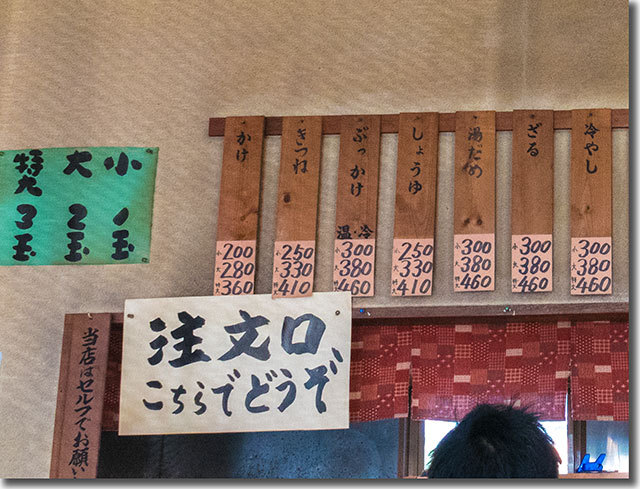 小 1玉
大 2玉
特大 3玉
冷やし
小 300
大 380
特大 460
ざる
小 300
大 380
特大 460
湯だめ
小 300
大 380
特大 460
しょうゆ
小 250
大 330
特大 410
ぶっかけ
温・冷
小 300
大 380
特大 460
きつね
小 250
大 330
特大 410
かけ
小 200
大 280
特大 360
注文口
こちらでどうぞ
当店はセルフでお願い